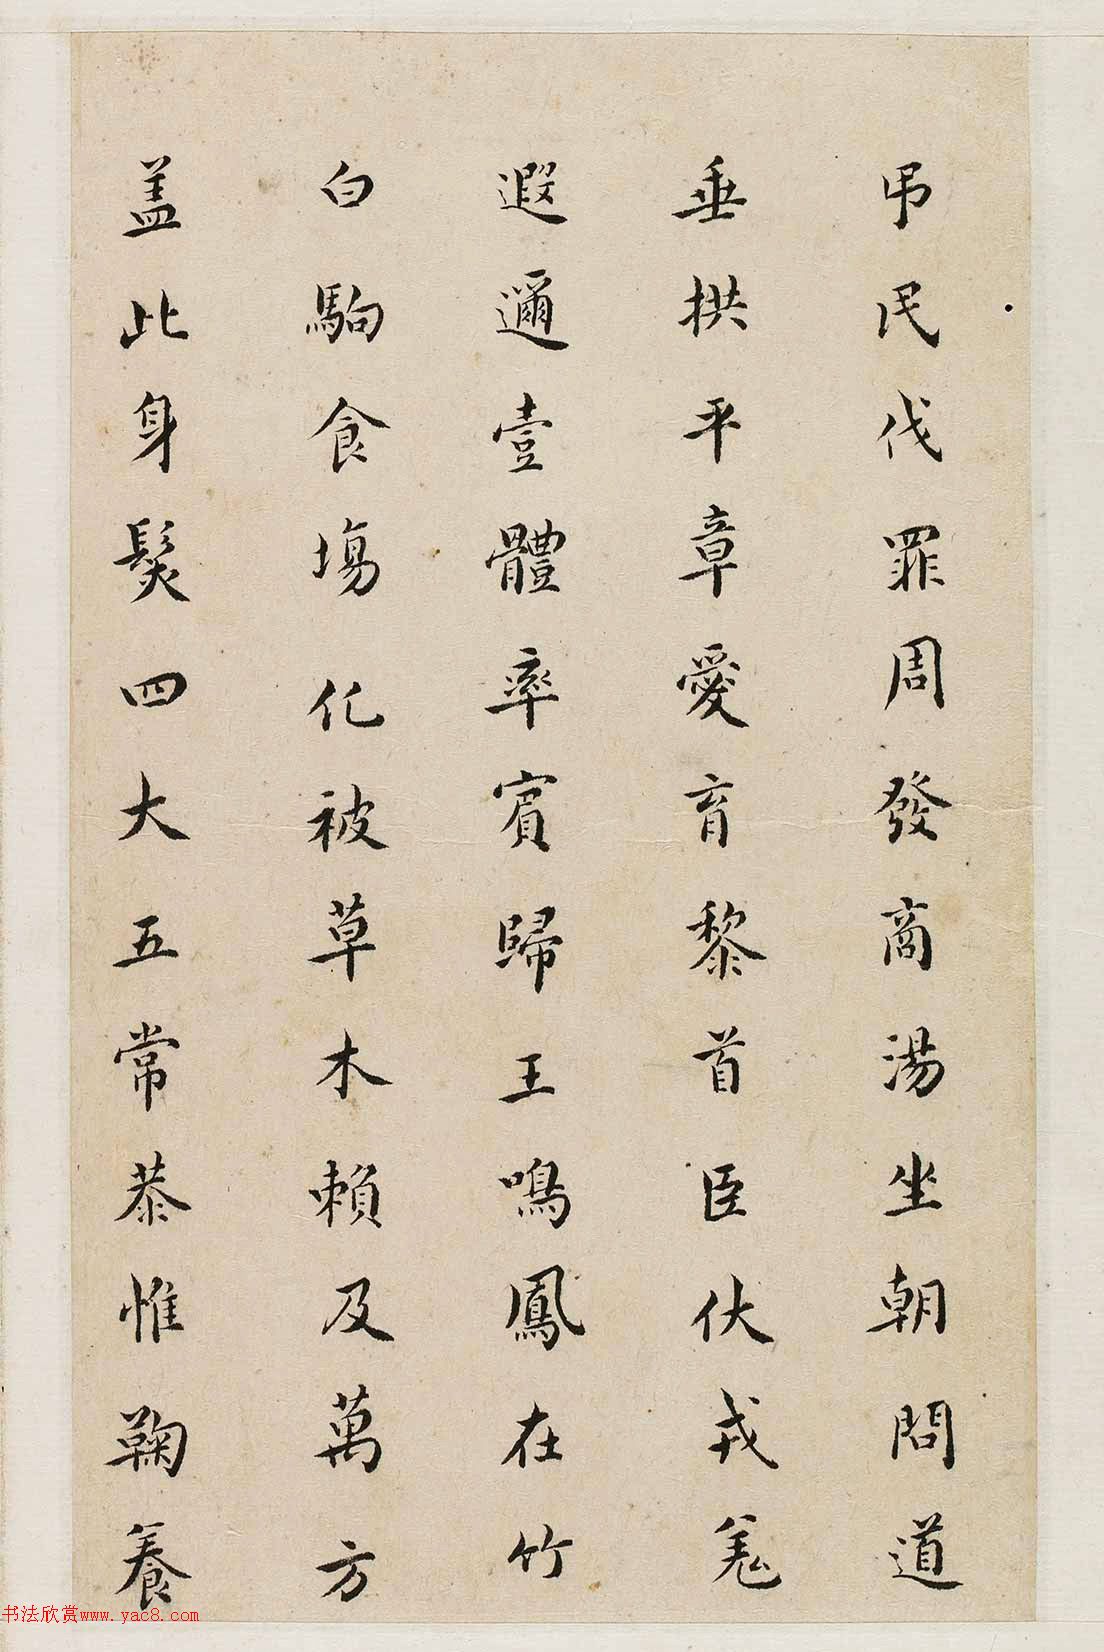 弔民伐罪周發商湯坐朝問道
垂拱平章愛育黎首臣伏戎羌
遐邇壹體率賓歸王鳴鳳在竹
白駒食場化被草木賴及萬方
盖此身髮四大五常恭惟鞠養
书法欣赏www.yac8.com